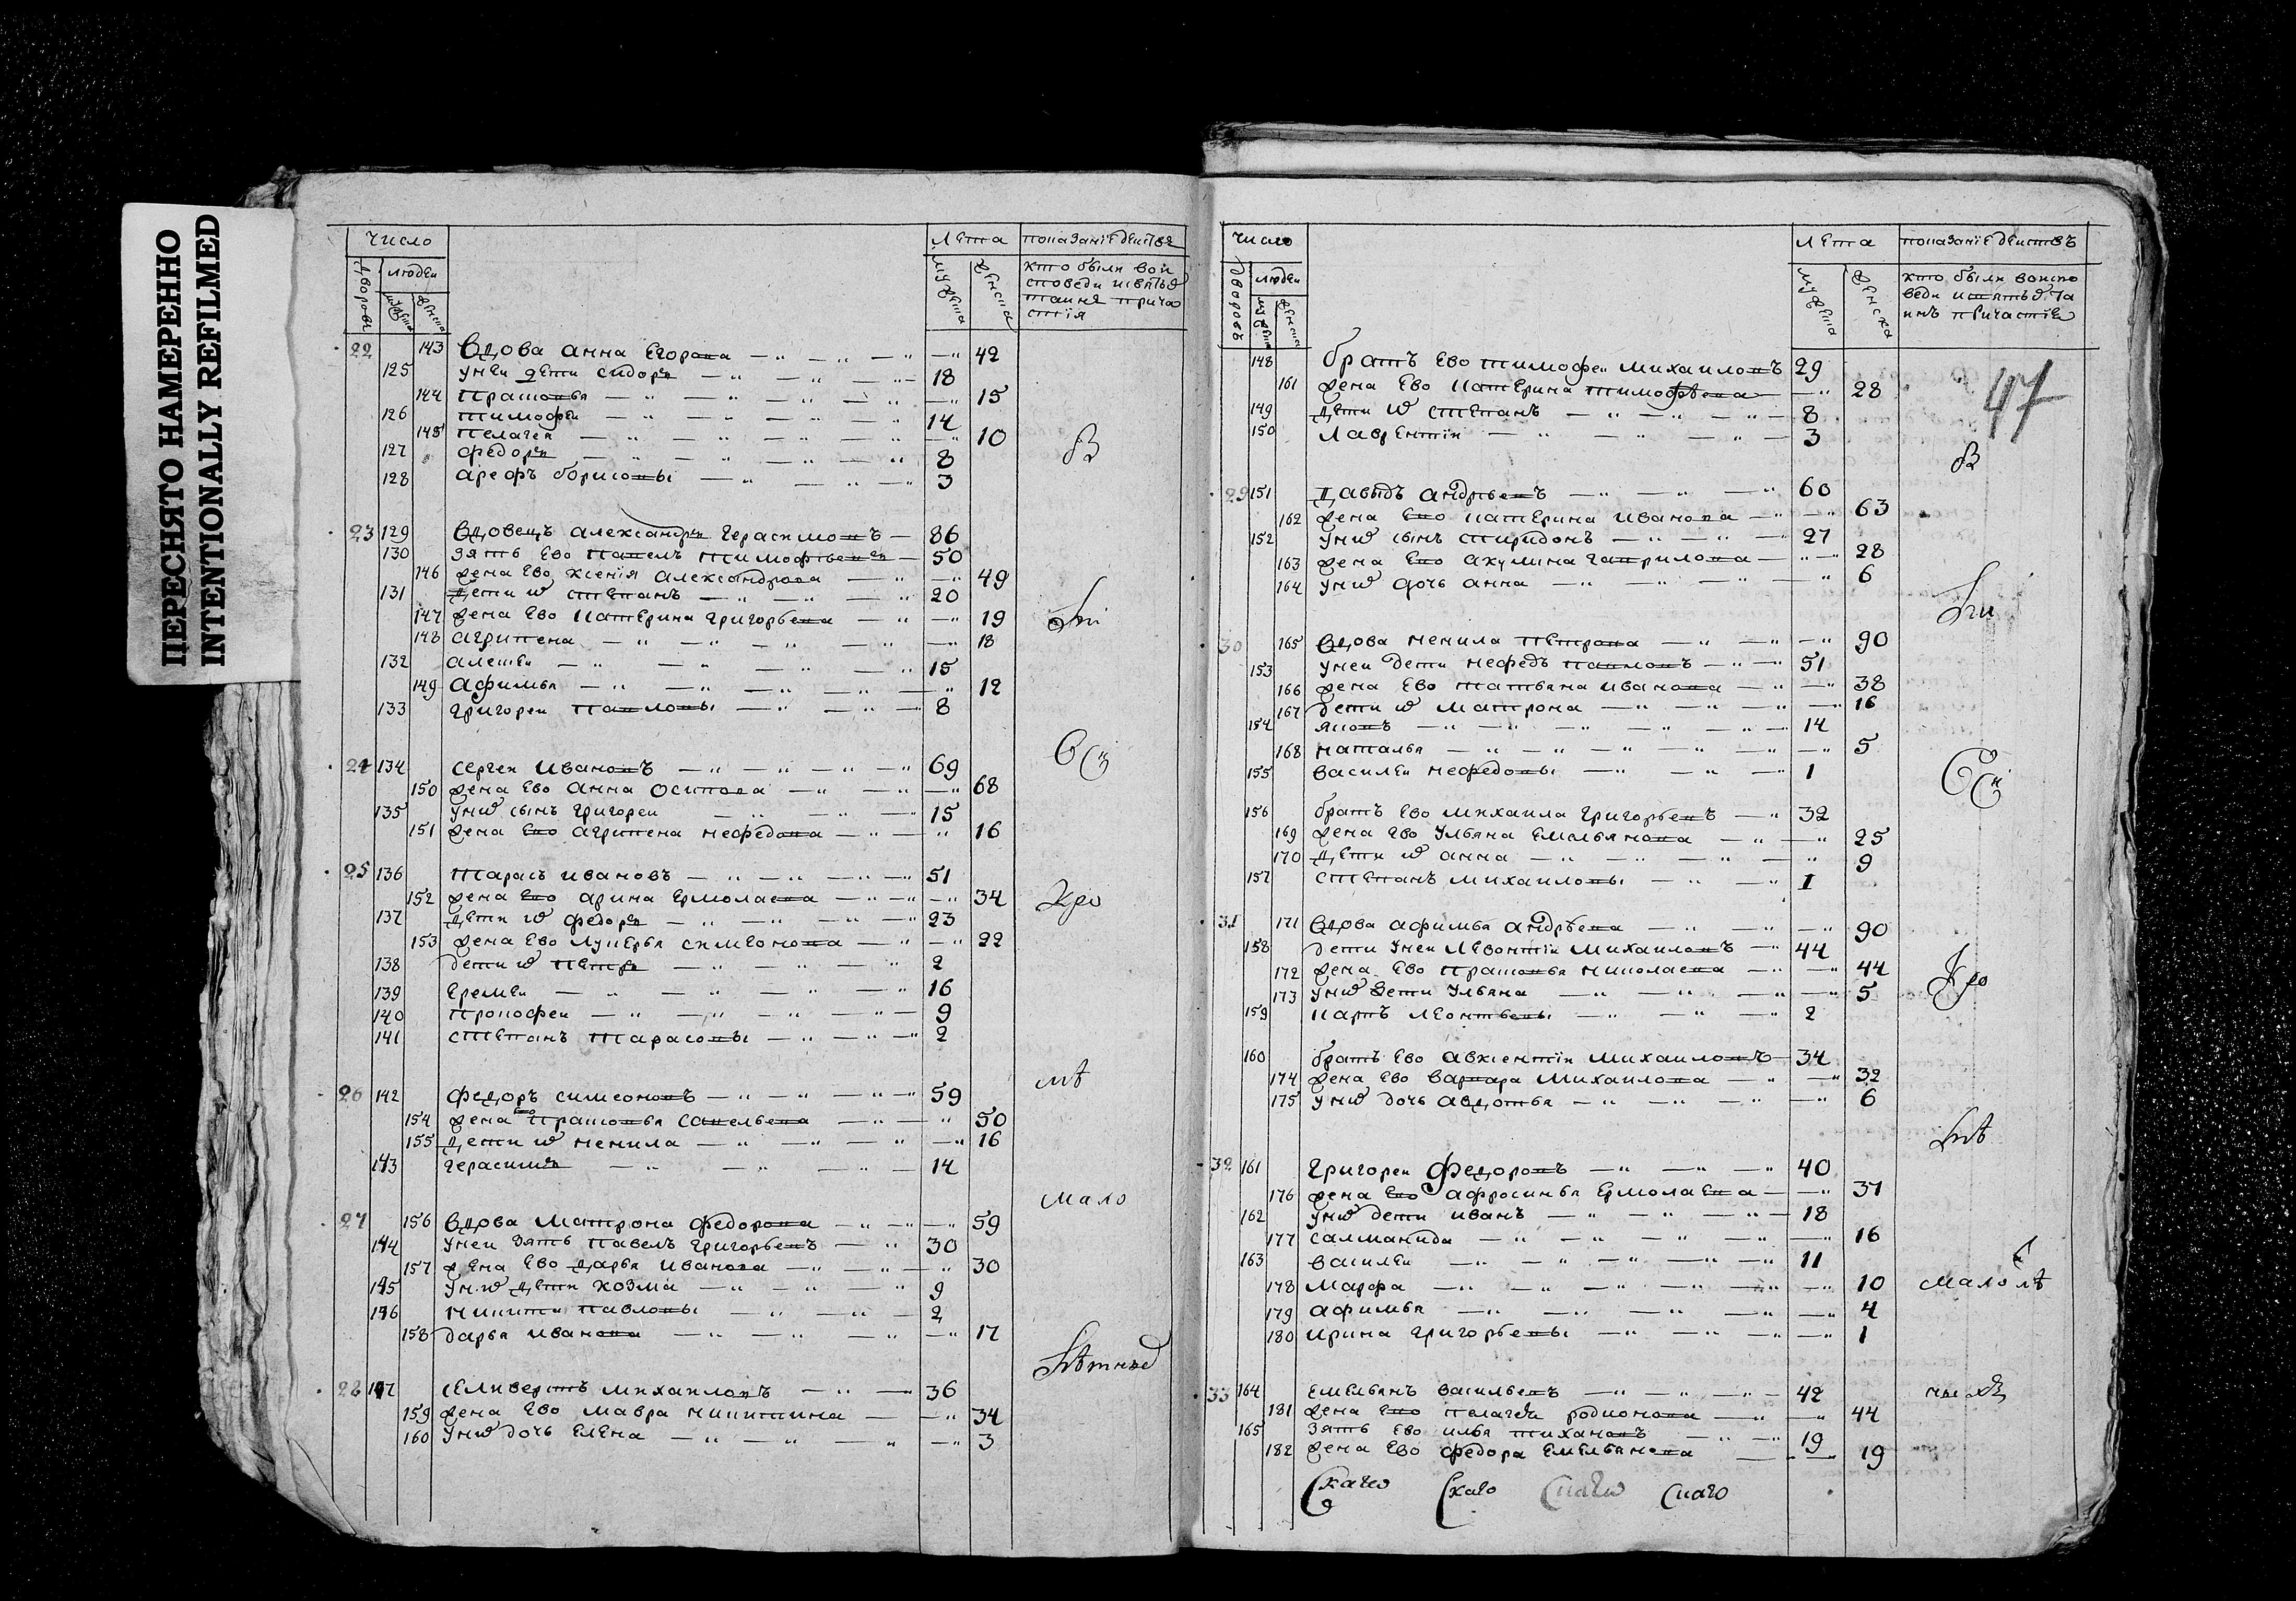 ПЕРЕСНЯТО НАМЕРЕННО
INTENTIONALLY REFILMED
число лета показание действъ
дворовъ людеи мужеска женска кто были воис
поведи исвятыхъ
таинъ прича
стїя
22 143 Вдова анна Егорова — 42
125 унеи дети сидоръ — 18
144 Прасковья — 15
126 тимофеи — 14
145 пелагея — 10
127 федоръ — 8
128 арефъ борисовы — 3
В
23 129 Вдовецъ александръ герасимовъ — 86
130 зять Ево павелъ тимофѣевъ — 50
146 жена Ево ксенїя александрова — 49
131 Дети их степанъ — 20
147 жена Ево катерина григорьева — 19
148 агрипена — 18
132 алексеи — 15
149 афимья — 12
133 григореи павловы — 8
24 134 сергеи ивановъ — 69
150 жена Ево анна осипова — 68
135 у них сынъ григореи — 15
151 жена Ево агрипена нефедова — 16
Вси
25 136 тарасъ ивановъ — 51
152 жена Ево арина Ермолаева — 34
137 дети их федоръ — 23
153 жена Ево лукерья симеонова — 22
138 дети их петръ — 2
139 Еремеи — 16
140 прокофеи — 9
141 степанъ тарасовы — 2
Кро
26 142 федоръ симеоновъ — 59
мѣ
154 жена Ево прасковья савельева — 50
155 Дети их ненила — 16
143 герасимъ — 14
мало
27 156 Вдова матрона федорова — 59
144 унеи зять павелъ григорьевъ — 30
157 жена Ево дарья иванова — 30
145 у них дети козма — 9
146 никита павловы — 2
158 дарья иванова — 17
лѣтныхъ
28 147 селиверстъ михаиловъ — 36
159 жена Ево мавра никитина — 34
160 у них дочь Елена — 3
число лета показанїе действъ
дворовъ людеи мужеска женска кто были воиспо
веди исвятыхъ та
инъ причастїя
47
148 братъ Ево тимофеи михаиловъ 29
161 жена Ево катерина тимофеева — 28
149 дети их степанъ — 8
150 лаврентїи — 3
В
29 151 Давыдъ андрѣевъ — 60
162 жена Ево катерина иванова — 63
152 у них сынъ спиридонъ — 27
163 жена Ево акулина гаврилова — 28
164 у них дочь анна — 6
30 165 Вдова ненила петрова — 90
153 унеи дети нефедъ павловъ — 51
166 жена Ево татьяна иванова — 38
167 дети их матрона — 16
154 яковъ — 14
168 наталья — 5
155 василеи нефедовы — 1
Вси
156 братъ Ево михаила григорьевъ — 32
169 жена Ево ульяна Емельянова — 25
170 дети их анна — 9
157 степанъ михаиловы — 1
31 171 Вдова афимья андрѣева — 90
158 дети унеи левонтїи михаиловъ — 44
172 жена Ево прасковья николаева — 44
173 у них дети ульяна — 5
159 карпъ леонтьевы — 2
Кро
160 братъ Ево авксентїи михаиловъ 34
174 жена Ево варвара михаилова — 32
175 у них дочь авдотья — 6
мѣ
32 161 григореи федоровъ — 40
176 жена Ево афросинья Ермолаева — 37
162 у них дети иванъ — 18
177 саломанида — 16
163 василеи — 11
178 марфа — 10
малолѣ
179 афимья — 4
180 ирина григорьевы — 1
33 164 Емельянъ васильевъ — 42
ныхъ
181 жена Ево пелагея родионова — 44
165 зять Ево илья тихановъ — 19
182 жена Ево федора Емельянова — 19